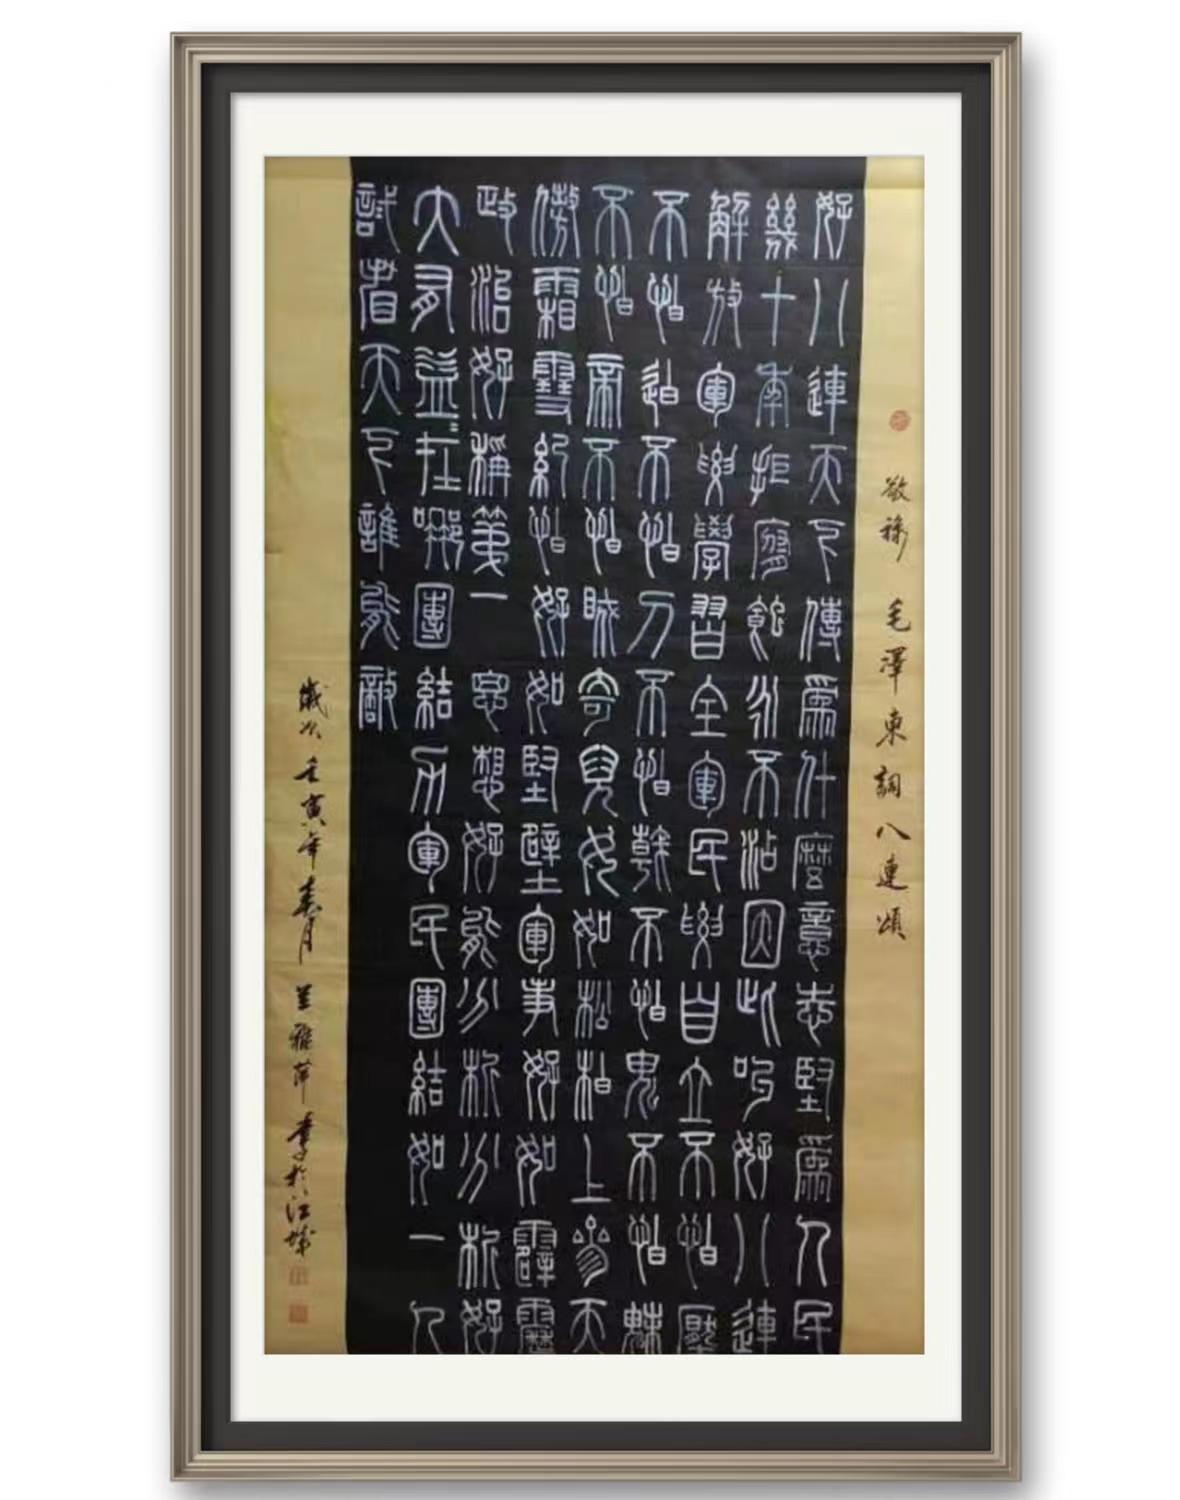 敬録 毛澤東詞八連頌
好八連天下傳爲什麼意志堅爲人民
幾十年拒腐蝕永不沾因此叫好八連
解放軍要學習全軍民要自立不怕壓
不怕迫不怕刀不怕戟不怕鬼不怕魅
不怕帝不怕賊奇兒女如松柏上參天
傲霜雪紀怕好如堅壁軍事好如霹靂
政治好稱第一思想好能分析分析好
大有益在哪團結力軍民團結如一人
試看天下誰能敵
歲次壬寅年春月 兰雅萍書於江城